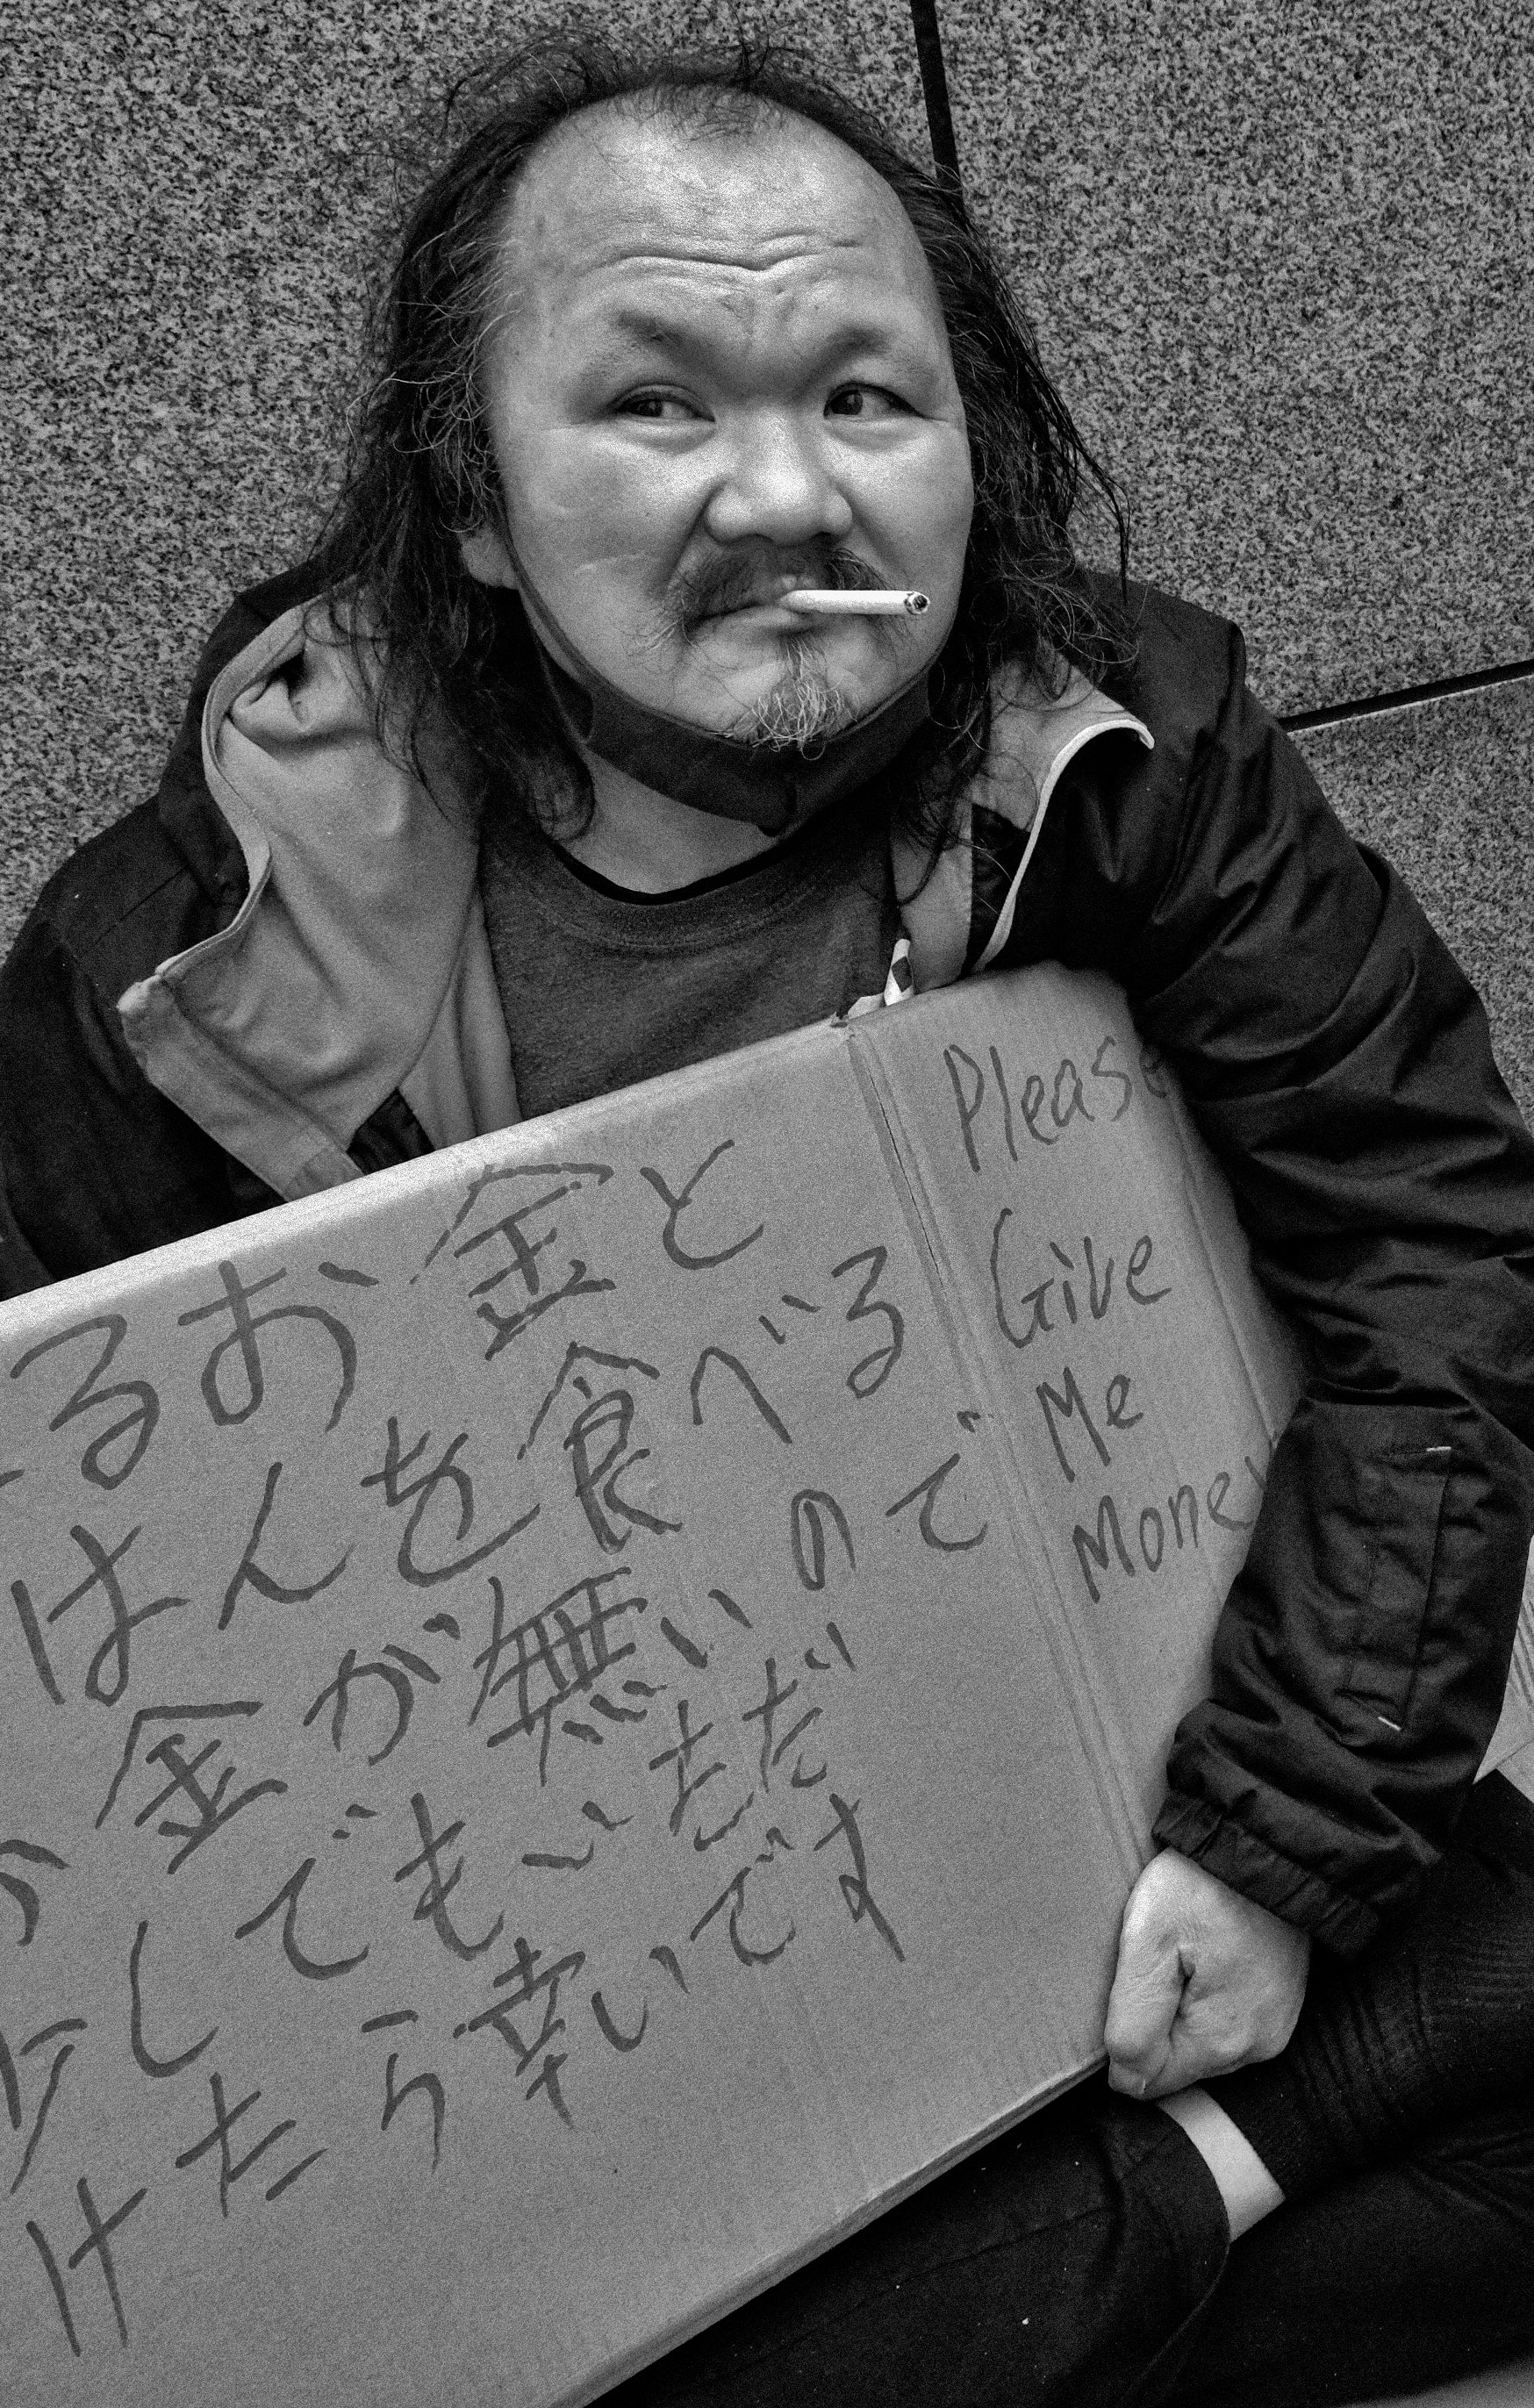 るお金と
はんを食べる
金が無いので
少しでもいただ
けたら幸いです
Please
Give
Me
Money